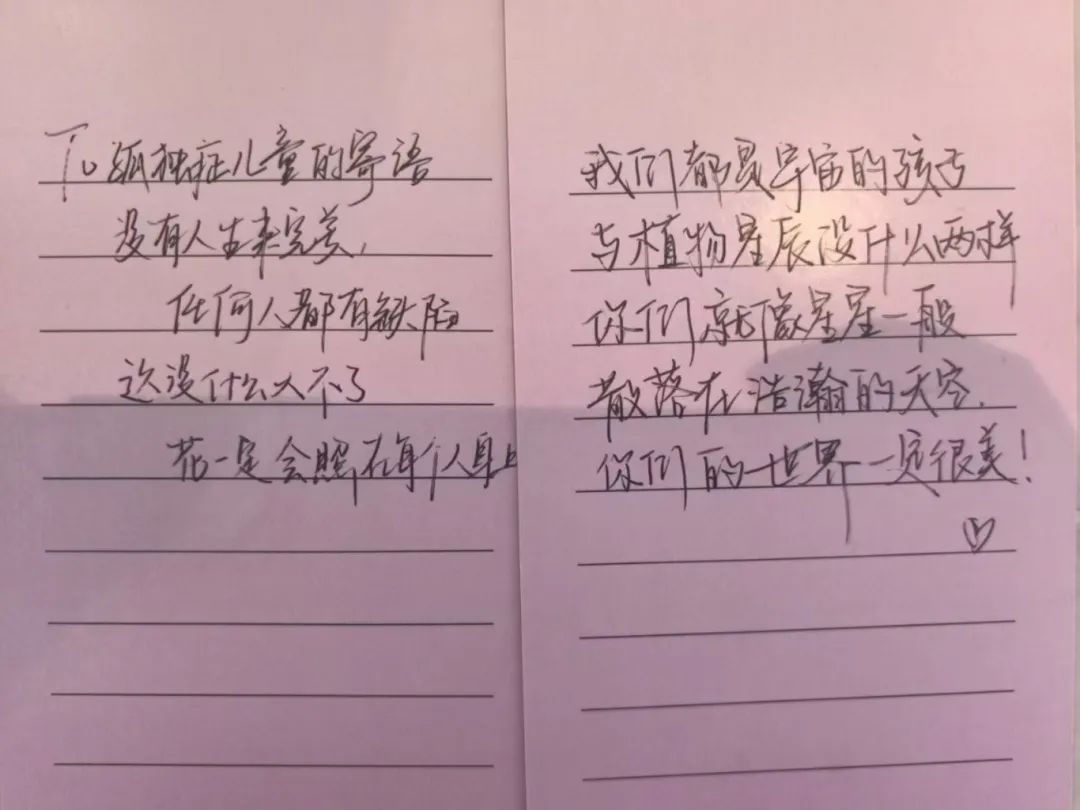 To 孤独症儿童的寄语
没有人生来完美,
任何人都有缺陷
这没什么大不了
花一定会照在每个人身上
我们都是宇宙的孩子
与植物星辰没什么两样
你们就像星星一般
散落在浩瀚的天空.
你们的世界一定很美!